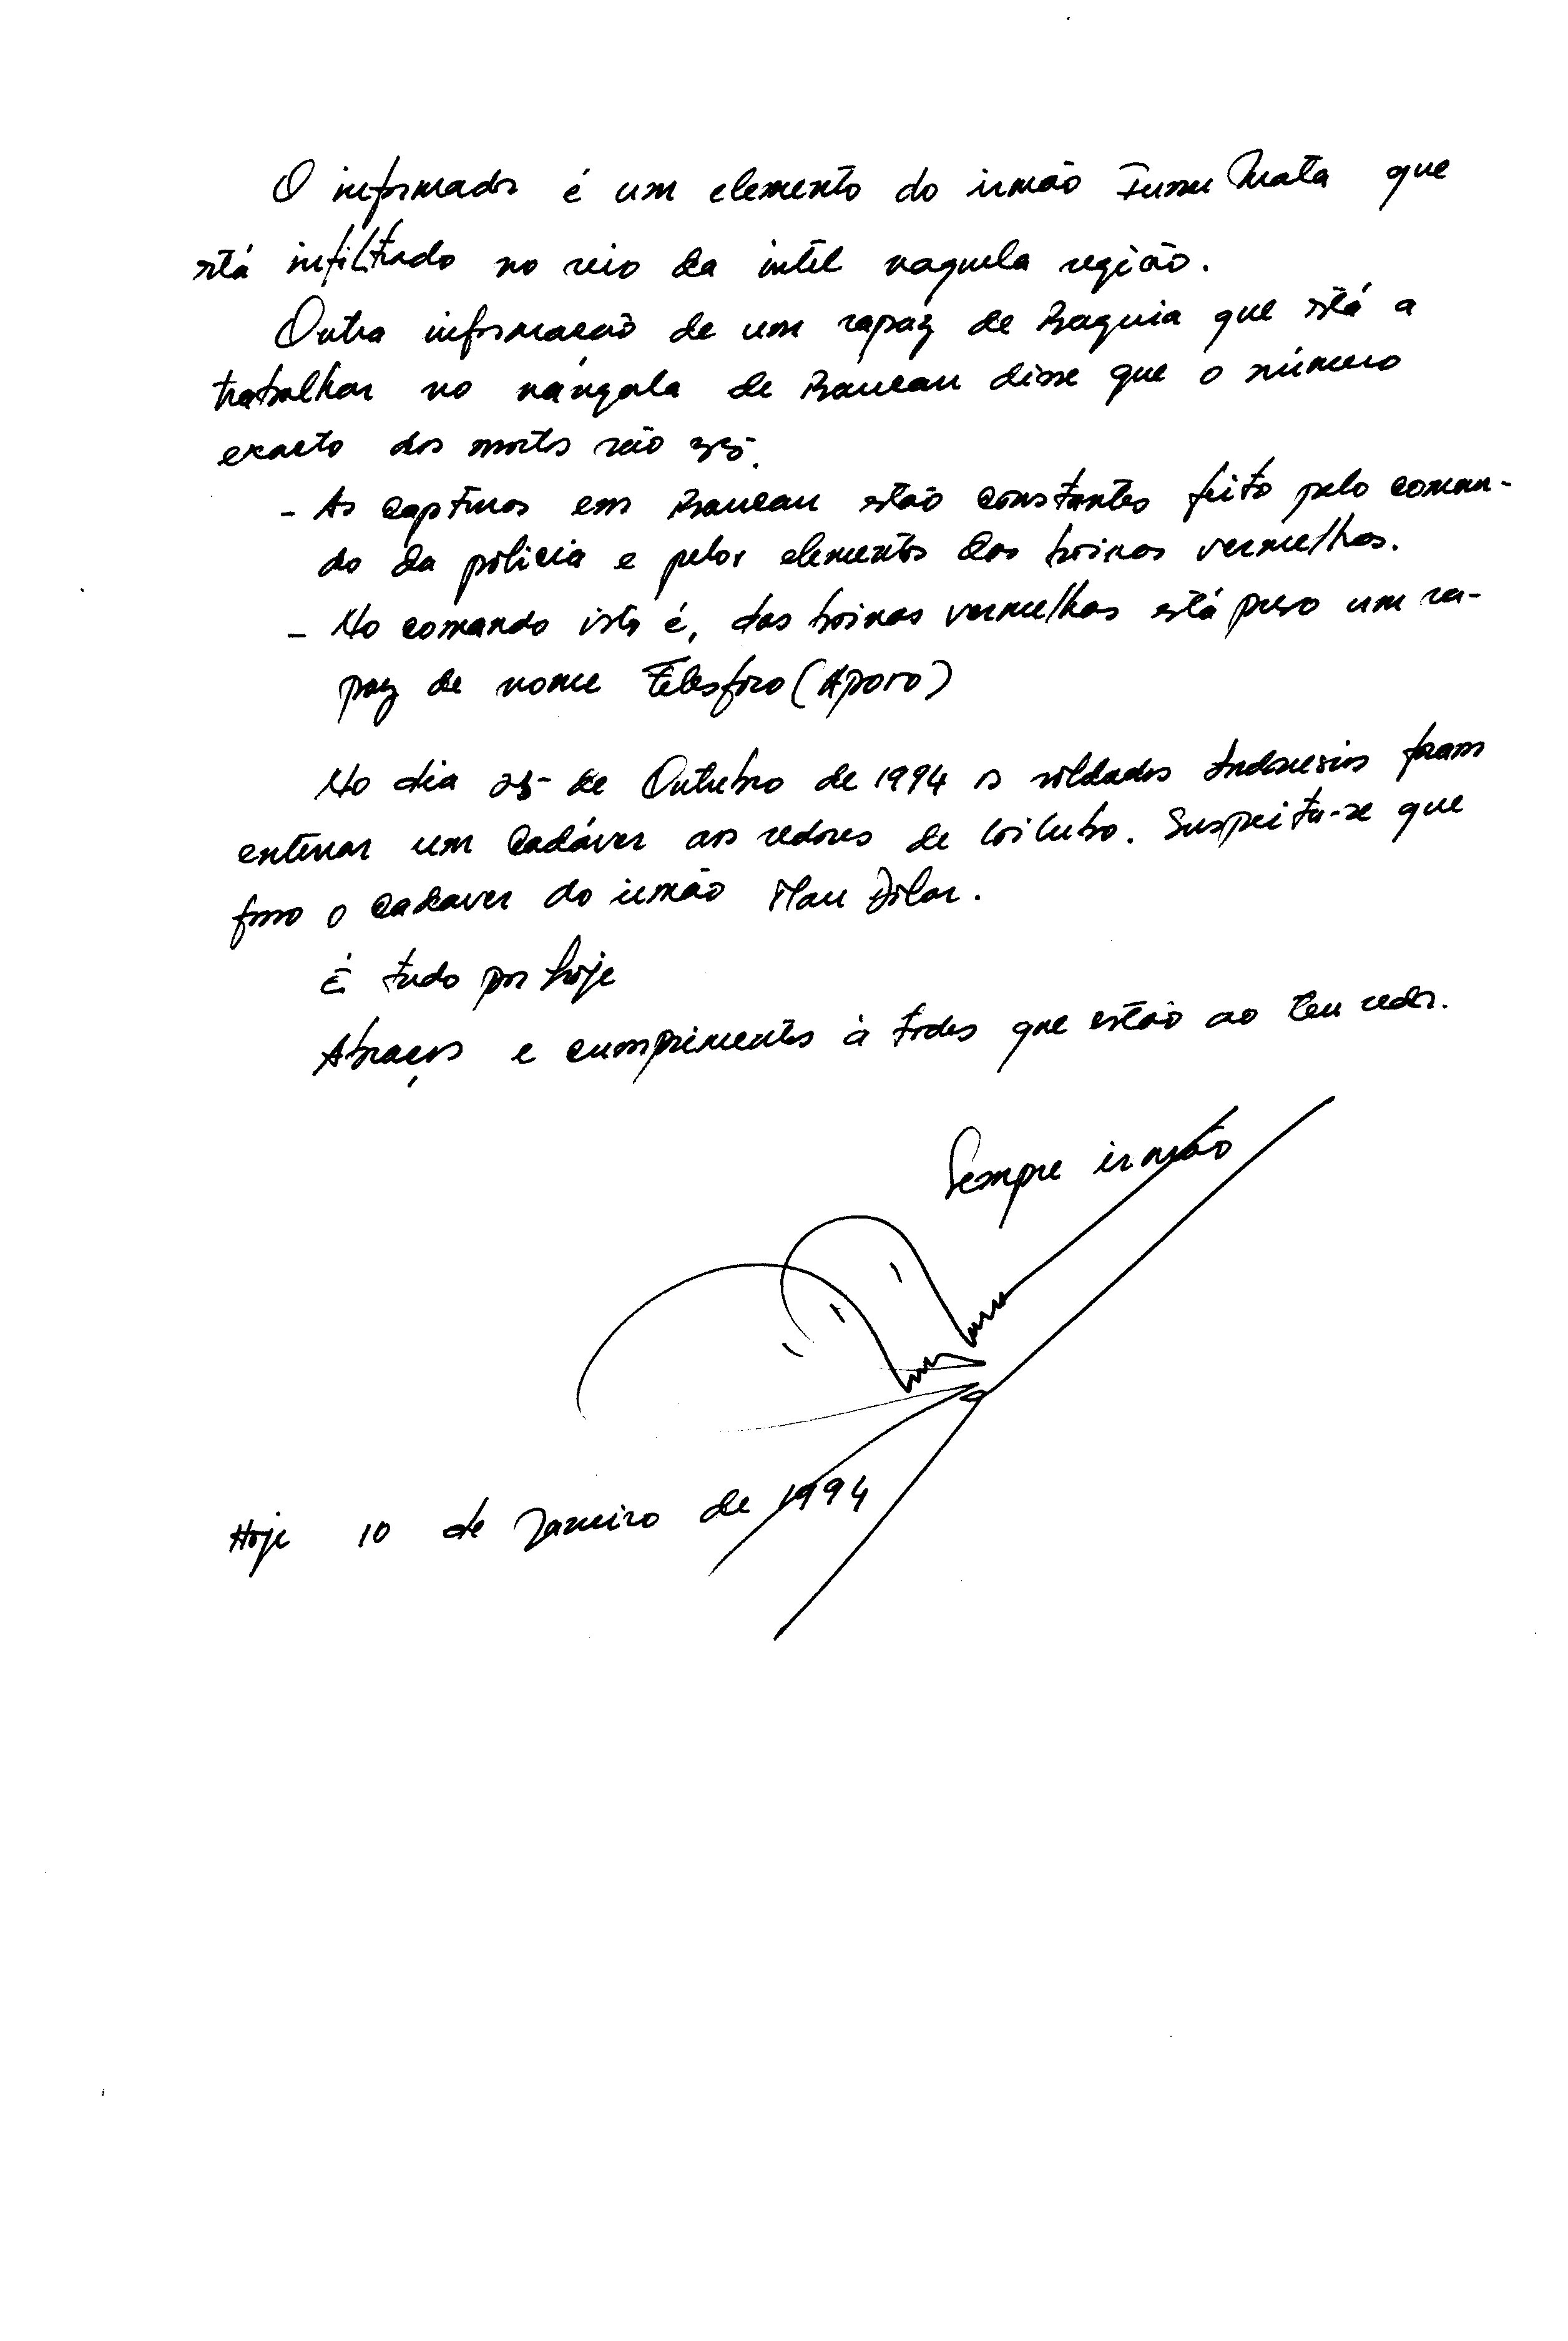 O informador é um elemento do irmão Fussu Mata que
está infiltrado no seio da intel naquela região.
Outra informação de um rapaz de Baguia que está a
trabalhar no nángala de Baucau disse que o número
exacto dos mortos são
- As capturas em Baucau estão constantes feito pelo coman-
do da policia e pelos elementos das boinas vermelhas.
- No comando isto é, das boinas vermelhas está preso um ra-
paz de nome Telesforo (Aporo)
No dia 25 de Outubro de 1994 os soldados Indonesios foram
enterrar um cadáver aos redores de Loilubo. Suspeita-se que
fosse o cadaver do irmão Mau
É tudo por hoje
Abraços e cumprimentos à todos que estão ao teu redor.
Sempre irmão
Hoje 10 de Janeiro de 1994